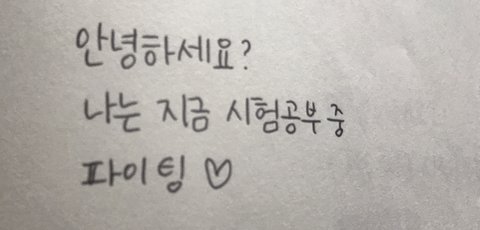 안녕하세요?
나는 지금 시험공부 중
파이팅 ♡